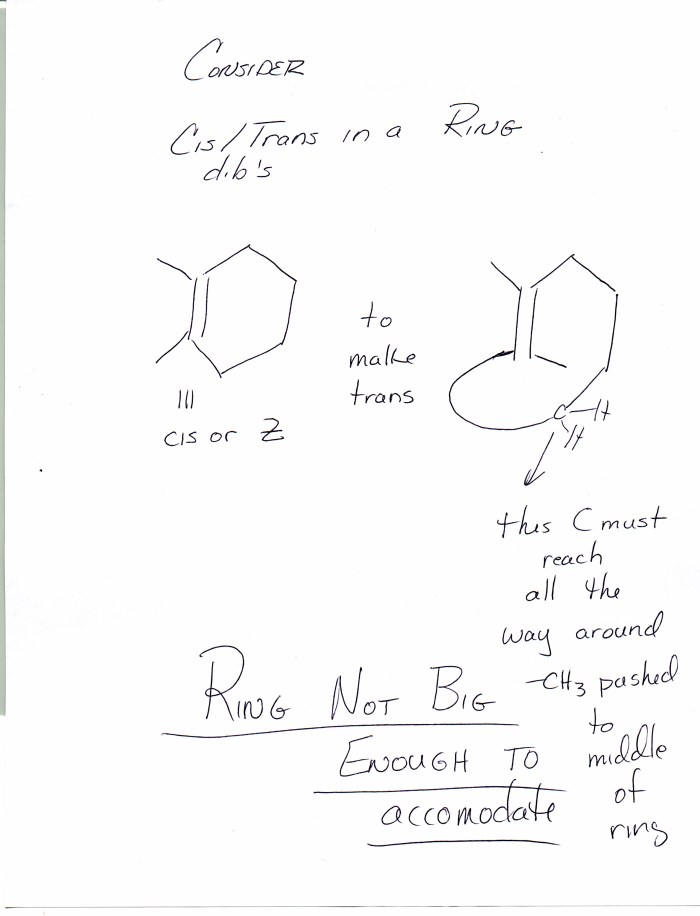 CONSIDER
Cis/Trans in a RING
d.b's
to
make
trans
cis or Z
C-H
H
this C must
reach
all the
way around
-CH3 pushed
to
middle
of
ring
RING NOT BIG
ENOUGH TO
accomodate